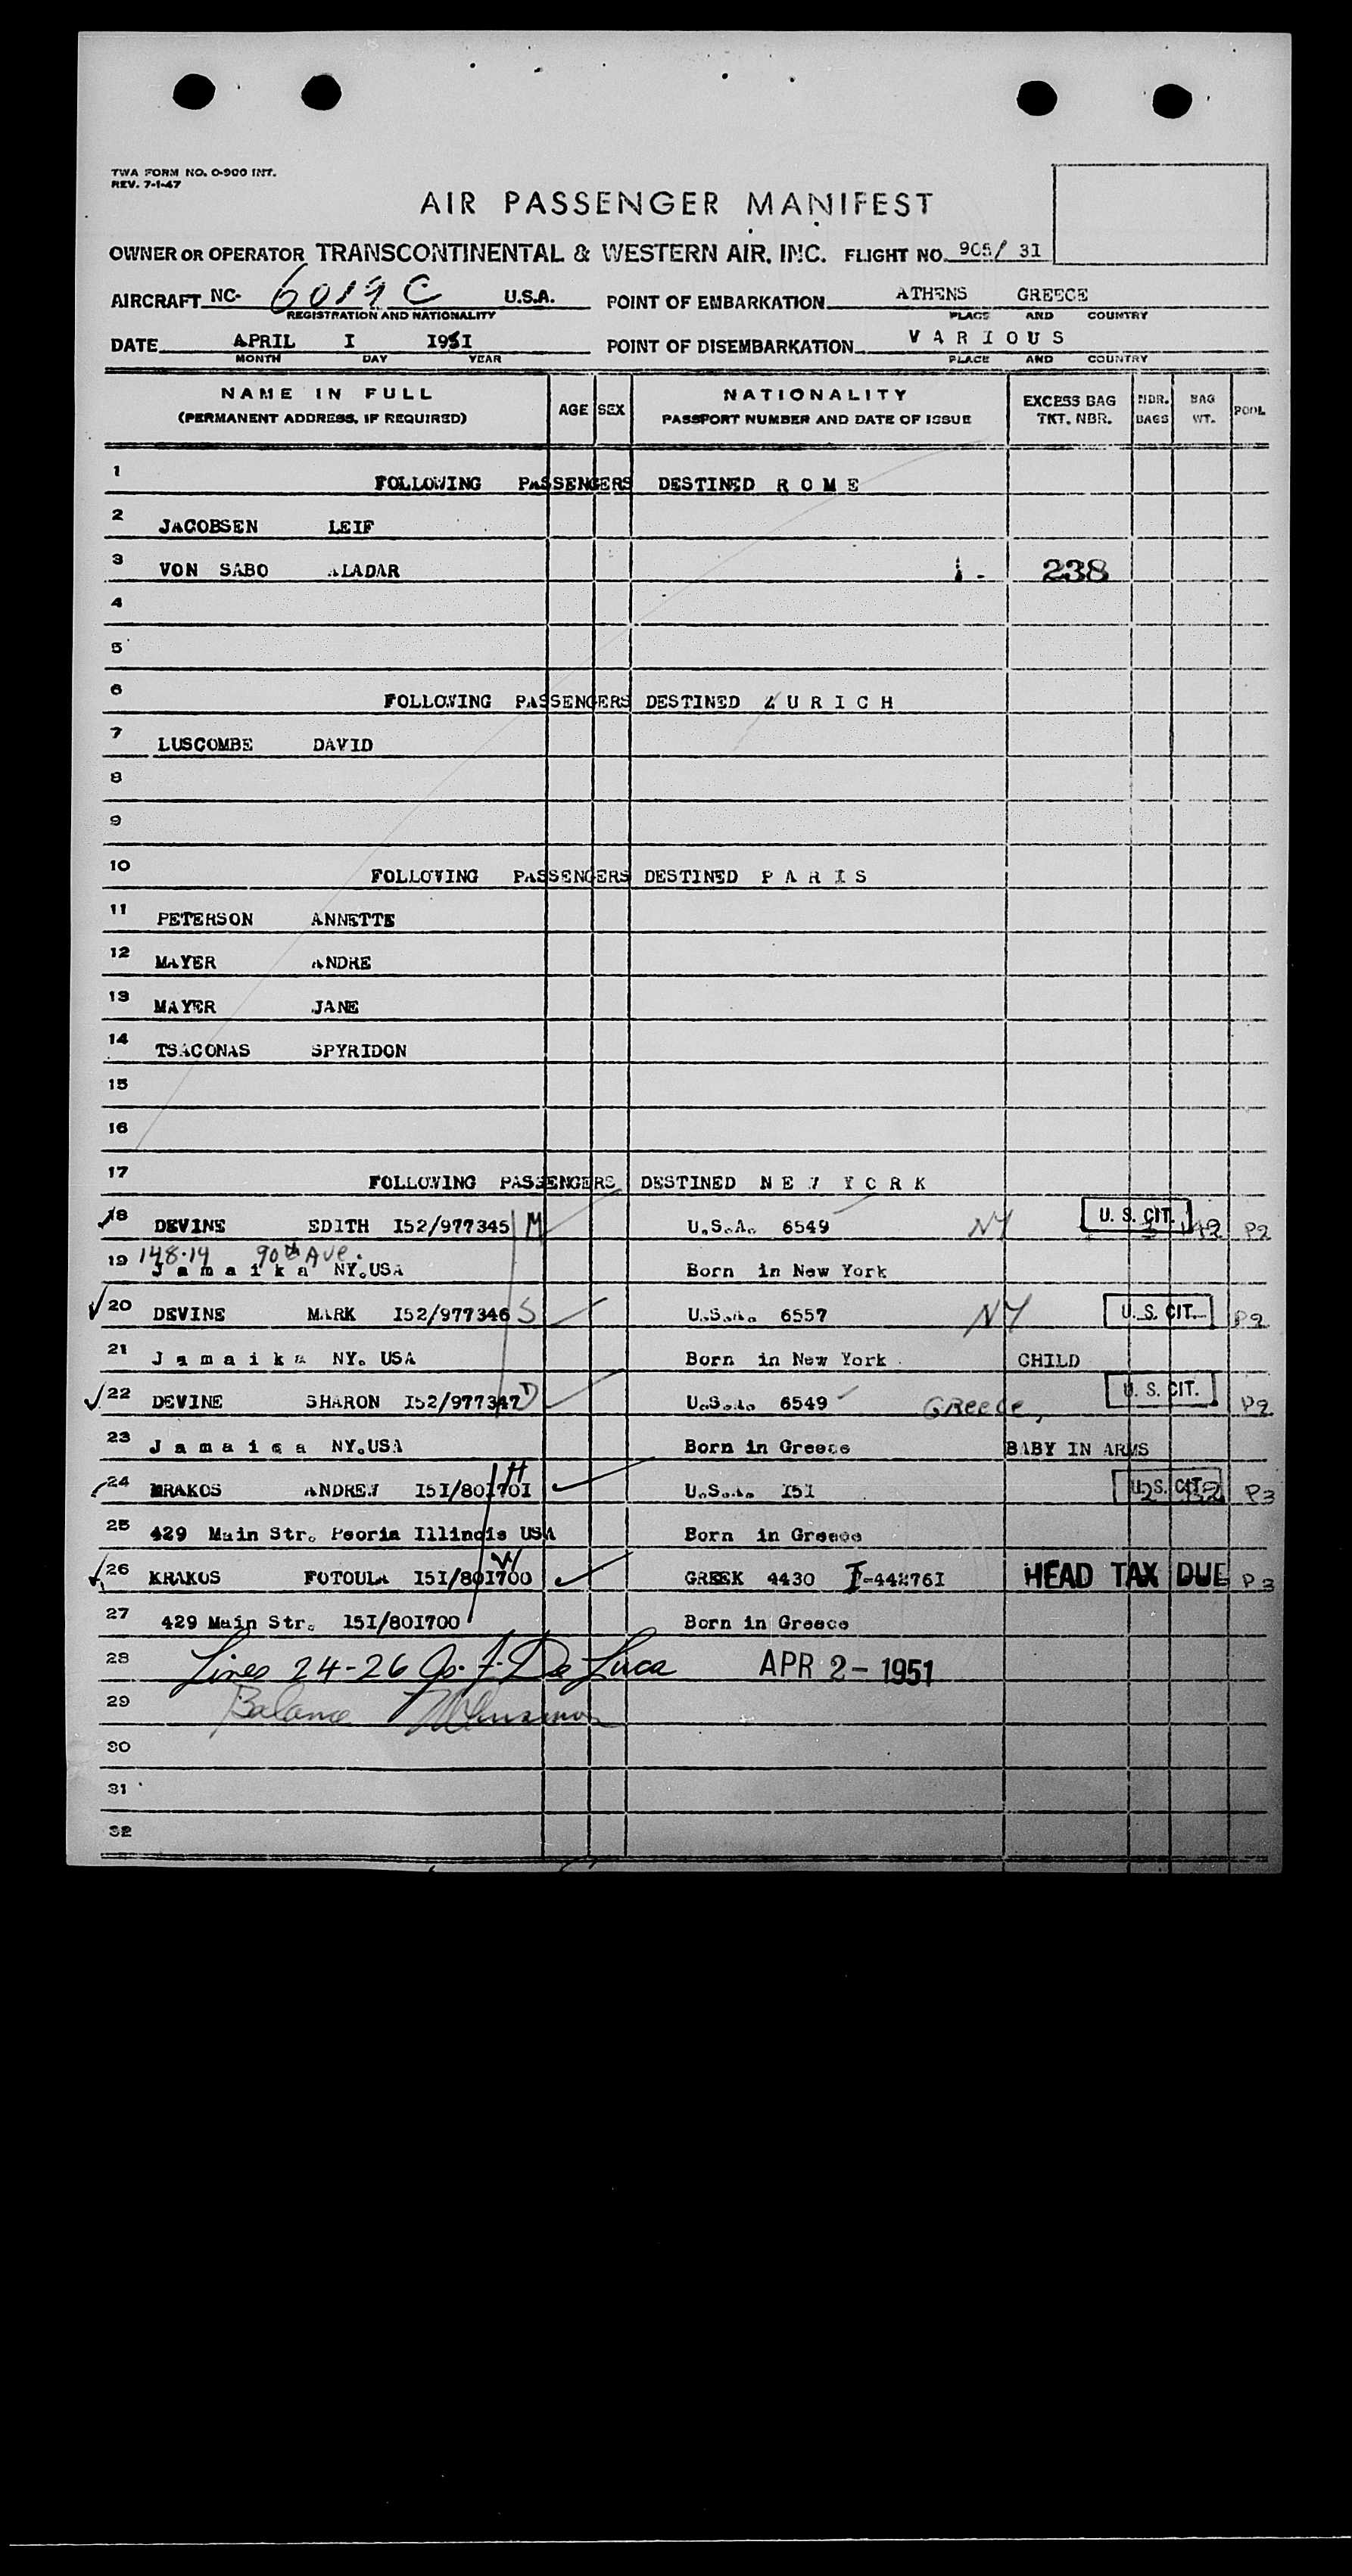 TWA FORM NO. O-900 INT.
REV. 7-1-47
AIR PASSENGER MANIFEST
OWNER OR OPERATOR TRANSCONTINENTAL & WESTERN AIR, INC. FLIGHT NO. 905/ 31
AIRCRAFT NC- 6019 C U.S.A. POINT OF EMBARKATION ATHENS GREECE
REGISTRATION AND NATIONALITY PLACE AND COUNTRY
DATE APRIL I 1951 POINT OF DISEMBARKATION V A R I O U S
MONTH DAY YEAR PLACE AND COUNTRY
NAME IN FULL AGE SEX NATIONALITY EXCESS BAG NBR. BAG POOL
(PERMANENT ADDRESS, IF REQUIRED) PASSPORT NUMBER AND DATE OF ISSUE TKT. NBR. BAGS WT.
1 FOLLOWING PASSENGERS DESTINED R O M E
2 JACOBSEN LEIF
3 VON SABO ALADAR 238
4
5
6 FOLLOWING PASSENGERS DESTINED Z U R I C H
7 LUSCOMBE DAVID
8
9
10 FOLLOWING PASSENGERS DESTINED P A R I S
11 PETERSON ANNETTE
12 MAYER ANDRE
13 MAYER JANE
14 TSACONAS SPYRIDON
15
16
17 FOLLOWING PASSENGERS DESTINED N E W Y O R K
18 DEVINE EDITH I52/977345 M U.S.A. 6549 NY U. S. CIT. P2
148-14 90th Ave.
19 J a m a i k a NY.USA Born in New York
20 DEVINE MARK I52/977346 S U.S.A. 6557 NY U. S. CIT. P2
21 J a m a i k a NY. USA Born in New York CHILD
22 DEVINE SHARON I52/977347 D U.S.A. 6549 Greece, U. S. CIT. P2
23 J a m a i c a NY.USA Born in Greece BABY IN ARMS
24 KRAKOS ANDREW I5I/80I70I H U.S.A. I5I U. S. CIT. P3
25 429 Main Str. Peoria Illinois USA Born in Greece
26 KRAKOS FOTOULA I5I/80I700 W GREEK 4430 I-44276I HEAD TAX DUE P3
27 429 Main Str. 15I/80I700 Born in Greece
28 Lines 24-26 Jos. F. De Luca APR 2 - 1951
29 Balance
30
31
32